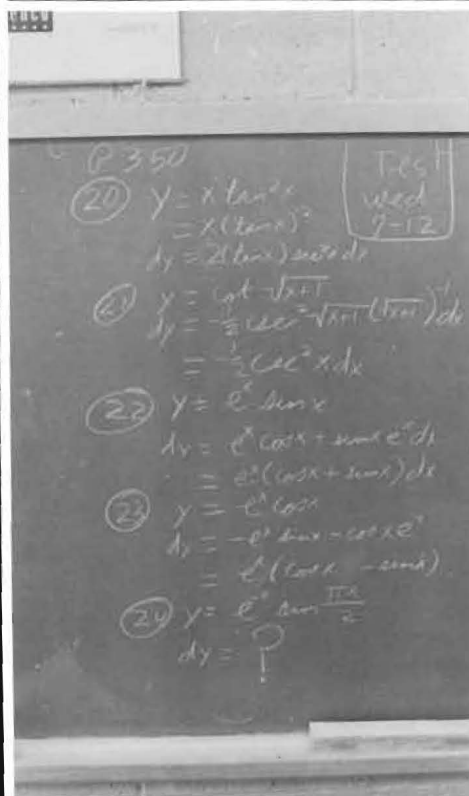 P 350
Test
Wed
7-12
20 y = x tan²x
= x(tanx)²
dy = 2(tanx) sec²x dx
21 y = cot √x+1
dy = -½ csc² √x+1 (√x+1)⁻¹ dx
= -½ csc² x dx
22 y = eˣ sin x
dy = eˣ cosx + sinx eˣ dx
= eˣ (cosx + sinx) dx
23 y = eˣ cosx
dy = -eˣ sinx - cosx eˣ
= eˣ (cosx - sinx)
24 y = eˣ sin πx/2
dy = ?